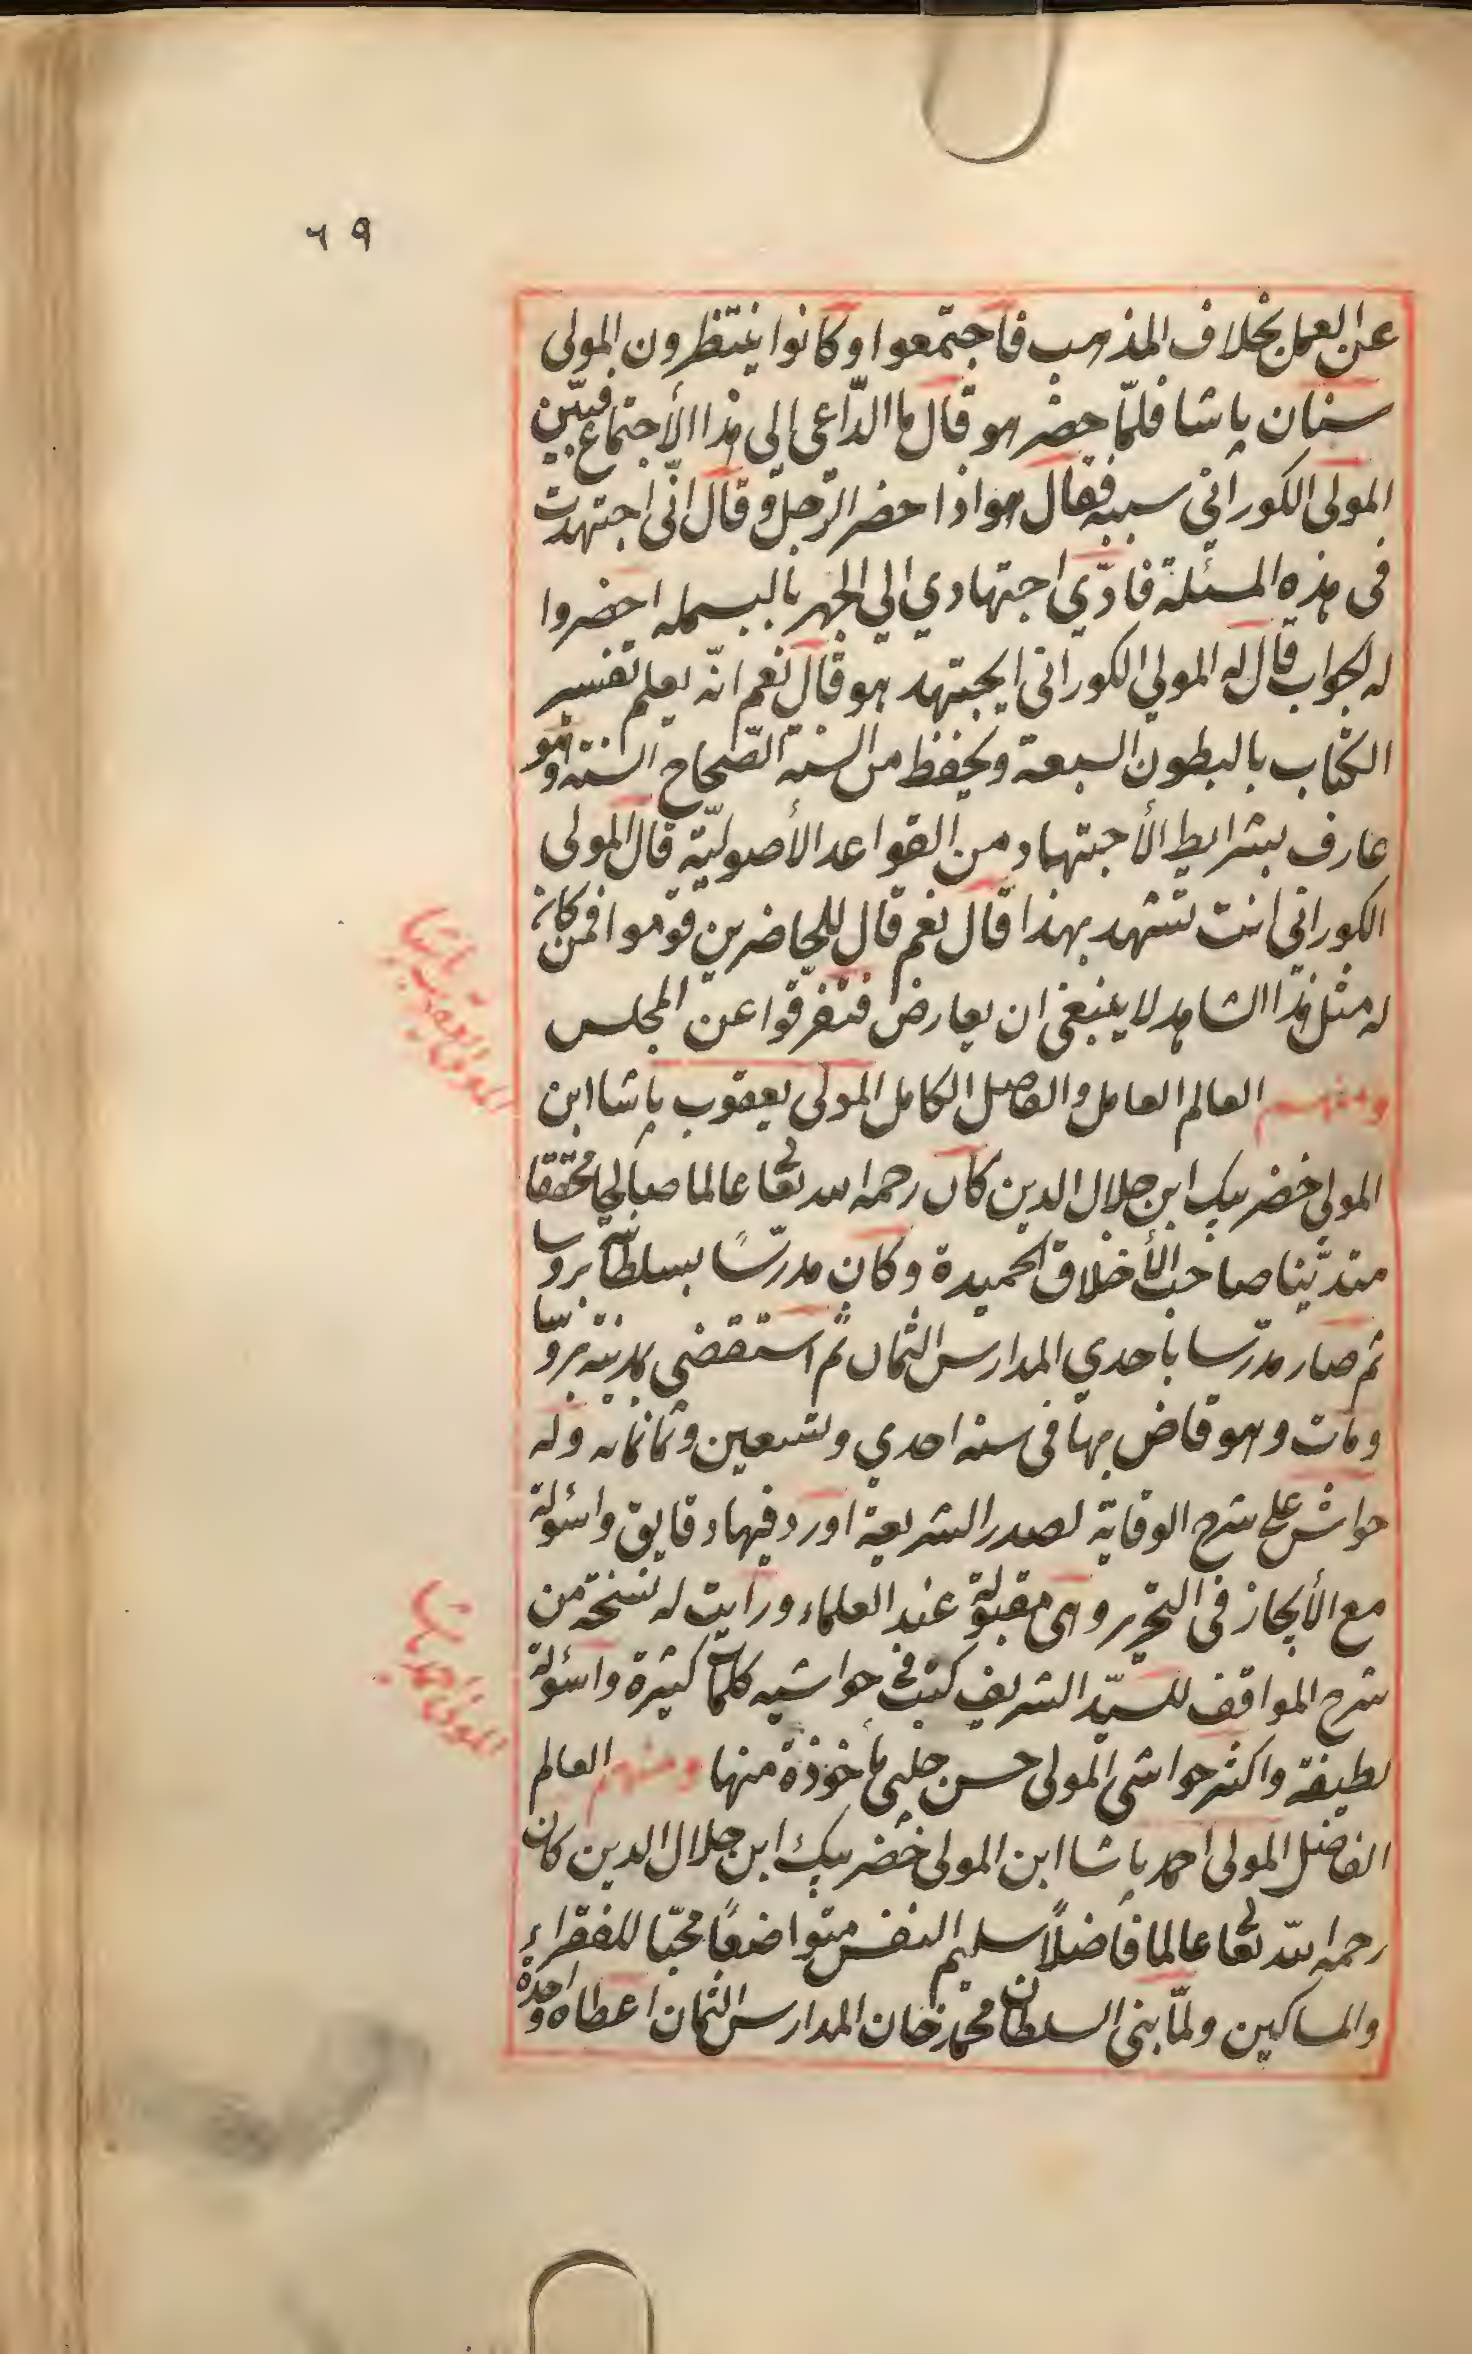 ٦٩
عن العمل بخلاف المذهب فاجتمعوا وكانوا ينتظرون المولى
سنان پاشا فلمّا حضر هو قال ما الدّاعى الى هذا الأجتماع فبيّن
المولى الكورانى سببه فقال هو اذا حضر الرّجل وقال انّى اجتهدت
فى هذه المسئلة فادّي اجتهادي الي الجهر بالبسمله احضروا
له الجواب قال له المولي الكورانى ايجتهد هو قال نعم انّه يعلم تفسير
الكتاب بالبطون السبعة ويحفظ من السنه الصّحاح الستة وهو
عارف بشرايط الأجتهاد من القواعد الأصوليّة قال المولى
الكورانى انت تشهد بهذا قال نعم قال للحاضرين قوموا فمن كان
له مثل هذا الشاهد لا ينبغى ان يعارض فتفرّقوا عن المجلس
ومنهم العالم العامل والفاضل الكامل المولى يعقوب پاشا ابن
المولي خضر بيك ابن جلال الدين كان رحمه الله تعا لى عالما صالحا محققا
متديّنا صاحب الأخلاق الحميدة وكان مدرّسًا بسلطانية بروسا
ثم صار مدرّسا باحدي المدارس الثمان ثم استقضى بمدينة بروسا
ومات وهو قاض بها فى سنه احدي وتسعين وثمانمائه وله
حواش على شرح الوقاية لصدر الشريعة اورد فيها دقايق واسؤلة
مع الأيجاز فى التحرير وهى مقبولة عند العلماء ورايت له نسخة من
شرح المواقف للسيّد الشريف كتب فى حواشيه كلمات كثيرة واسؤلة
لطيفة واكثر حواشى المولى حسن چلبى مأخوذة منها ومنهم العالم
الفاضل المولى احمد پاشا ابن المولى خضر بيك ابن جلال الدين كان
رحمه الله تعا لى عالما فاضلاً سليم النفس متواضعًا محبّا للفقراء
والمساكين ولمّا بنى السلطان محمد خان المدارس الثمان اعطاه واحدة
المولى يعقوب پاشا
المولى احمد پاشا